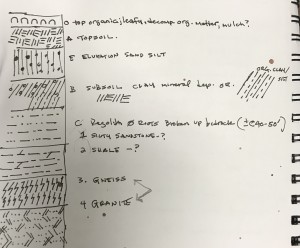 O top organic; leafy, decomp. org. matter, mulch?
A TOPSOIL
ORG. CLAY/
E ELUVIATION SAND SILT
B SUBSOIL CLAY mineral dep. OR.
C Regolith Ø Roots broken up bedrock (±
1 SILTY SANDSTONE-?
2 SHALE -?
3. GNEISS
4 GRANITE